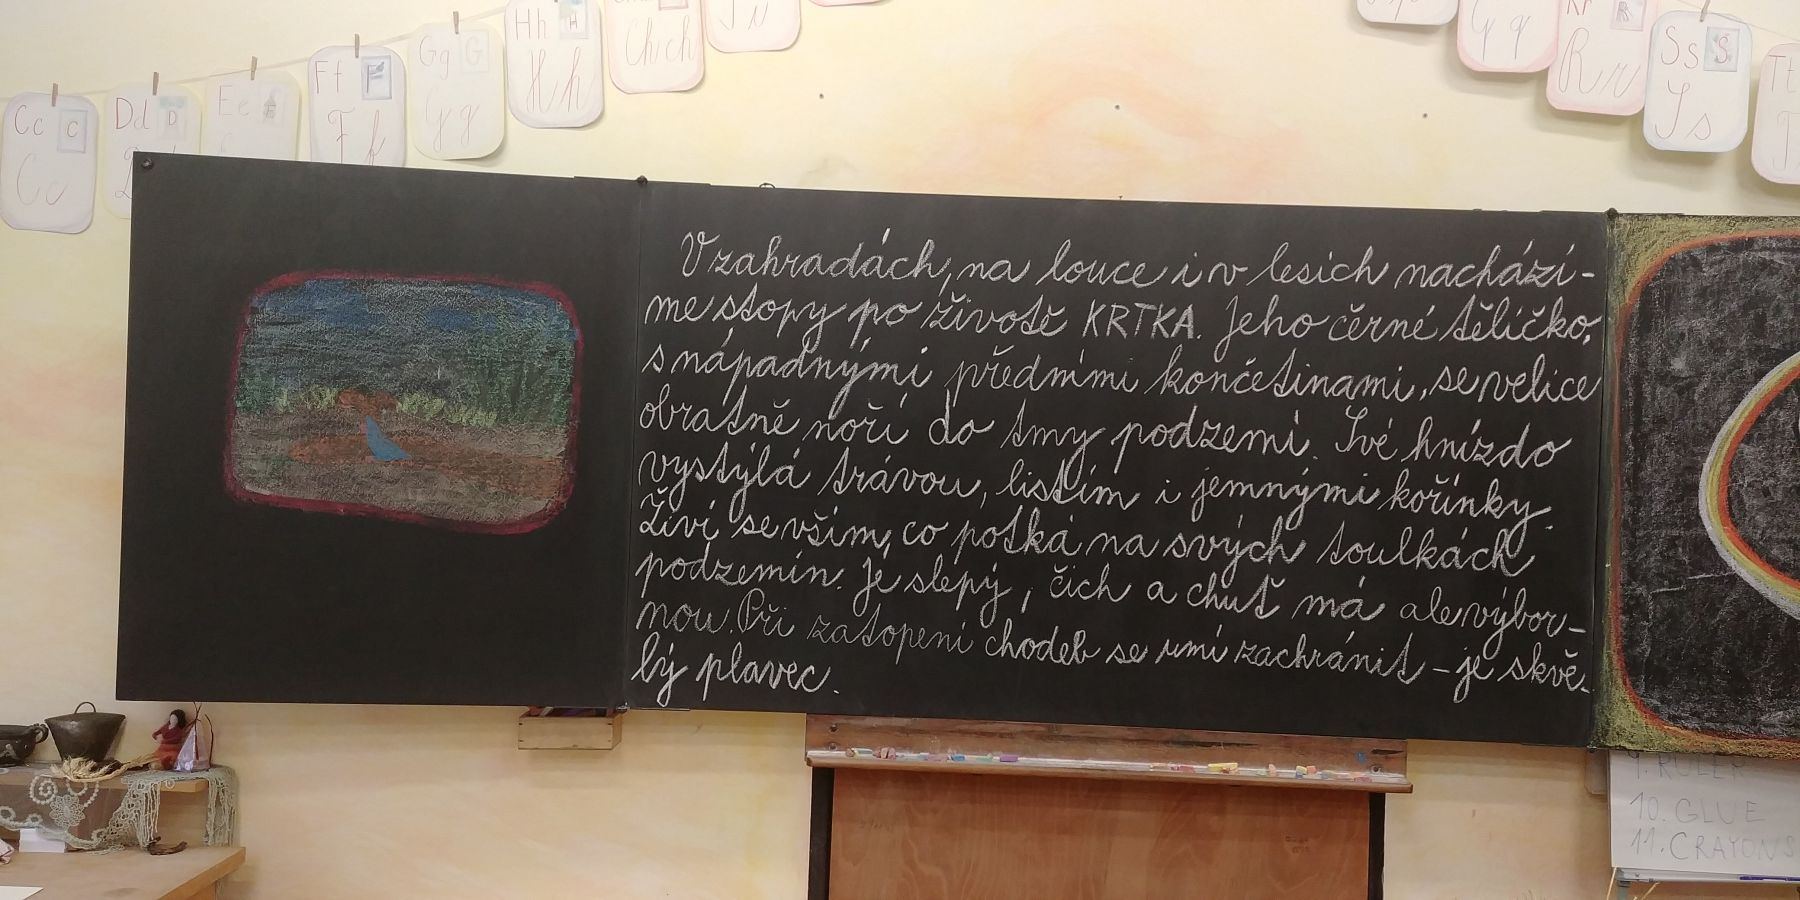 Hh H
Chch
Gg G
Ff F
Ee E
Dd D
Cc C
Hh
Gg
Ff
Cc
Gg
Rr R
Rr
Ss S
Ss
Tt
V zahradách, na louce i v lesích nachází-
me stopy po životě KRTKA. Jeho černé tělíčko,
s nápadnými předními končetinami, se velice
obratně noří do tmy podzemí. Své hnízdo
vystýlá trávou, listím i jemnými kořínky.
Živí se vším, co potká na svých toulkách
podzemím. Je slepý, čich a chuť má ale výbor-
nou. Při zatopení chodeb se umí zachránit - je skvě-
lý plavec.
9. RULER
10. GLUE
11. CRAYONS